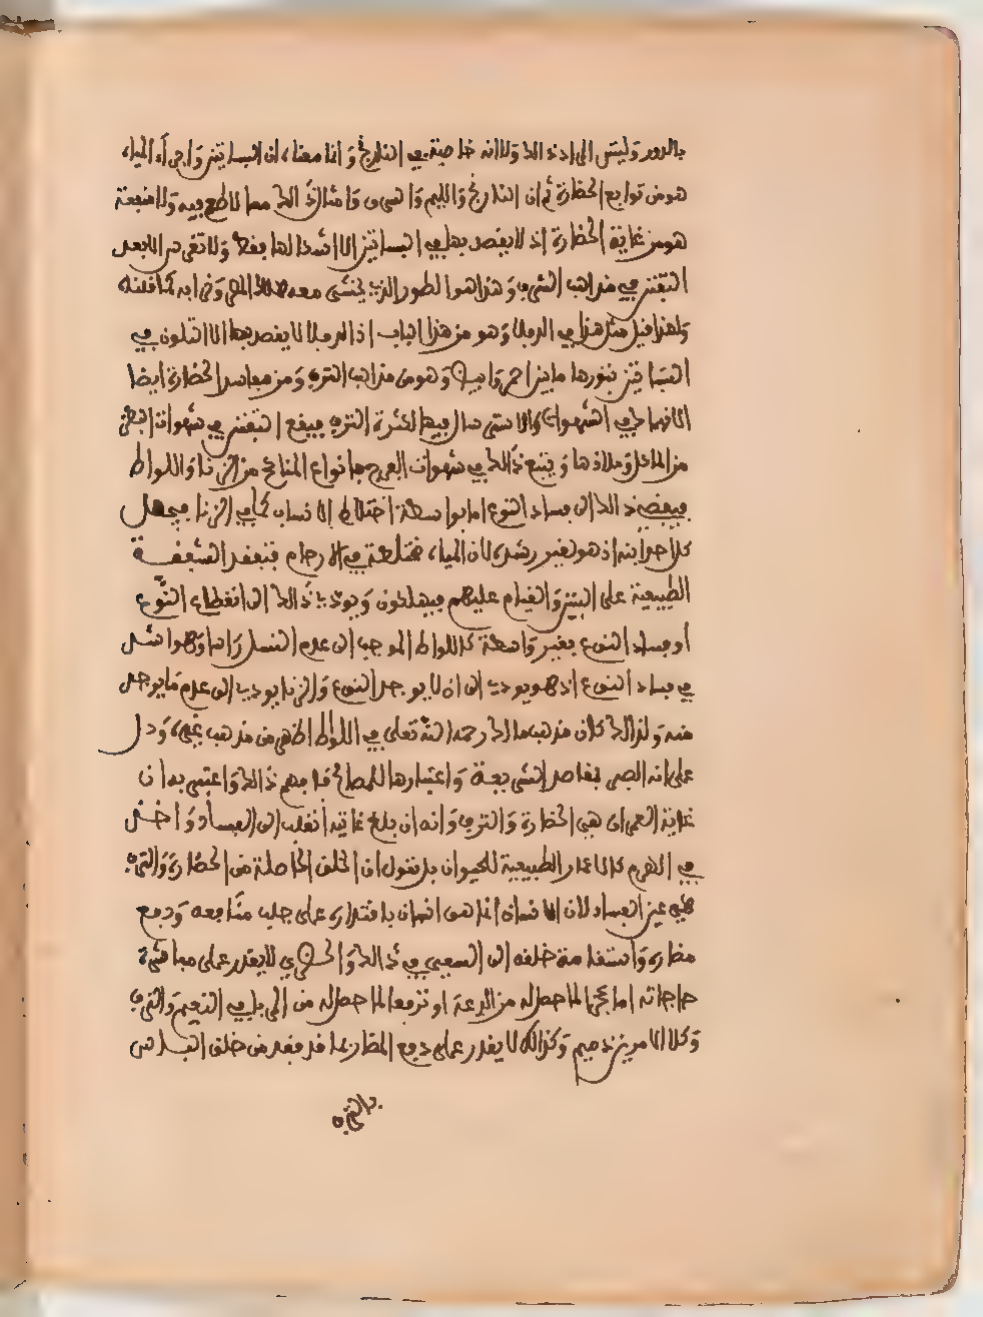 بالدور وليس المراد ذالك ولا انه خاصية في النارنج وانما معناه ان البساتين واجراء المياه
هو من توابع الحضارة ثم ان النارنج والليم والسرو وامثال ذالك مما لا طعم فيه ولا منفعة
هو من غاية الحضارة اذ لا يقصد بها في البساتين الا اشكالها فقط ولا تغرس الا بعد
التفنن في مذاهب الترف وهذا هو الطور الذي يخشى معه هلاك المصر وخرابه كما قلناه
ولهذا قيل مثل هذا في الدفلا وهو من هذا الباب اذ الدفلا لا يقصد بها الا تلون
البساتين بنورها ما بين احمر وابيض وهو من مذاهب الترف ومن مفاسد الحضارة ايضا
الانهماك في الشهوات والاسترسال فيها لكثرة الترف فيقع التفنن في شهوات البطن
من الماكل وملاذها ويتبع ذالك في شهوات الفرج بانواع المناكح من الزنا واللواط
فيفضي ذالك الى فساد النوع اما بواسطة اختلاط الانساب كما في الزنا فيجهل
كل احد ابنه اذ هو لغير رشدة لان المياه مختلطة في الارحام فتفقد الشفقة
الطبيعية على البنين والقيام عليهم فيهلكون ويودي ذالك الى انقطاع النوع
او فساد النوع بغير واسطة كاللواط الموجب الى عدم النسل راسا وهو اشد
في فساد النوع اذ هو يودي الى ان لا يوجد النوع والزنا يودي الى عدم ما يوجد
منه ولذالك كان مذهب مالك رحمه الله تعلى في اللواط اظهر من مذهب غيره ودل
على انه ابصر بمقاصد الشريعة واعتبارها للمصالح فافهم ذالك واعتبر به ان
غاية العمران هي الحضارة والترف وانه ان بلغ غايته انقلب الى الفساد واخذ
في الهرم كالاعمار الطبيعية للحيوان بل نقول ان الخلق الحاصلة من الحضارة والترف
هي عين الفساد لان الانسان انما هو انسان باقتداره على جلب منافعه ودفع
مضاره واستقامة خلقه الى السعي في ذالك والحضري لا يقدر على مباشرة
حاجاته اما عجزا لما حصل له من الدعة او ترفعا لما حصل له من المربا في النعيم والترف
وكلا الامرين ذميم وكذالك لا يقدر على دفع المضار بما قد فقد من خلق الباس
بالترف